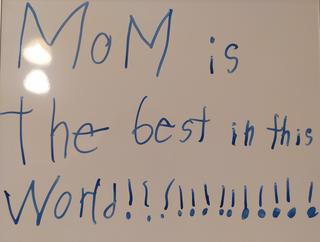 MoM is
The best in this
World!!!!!!!!!!!!!!